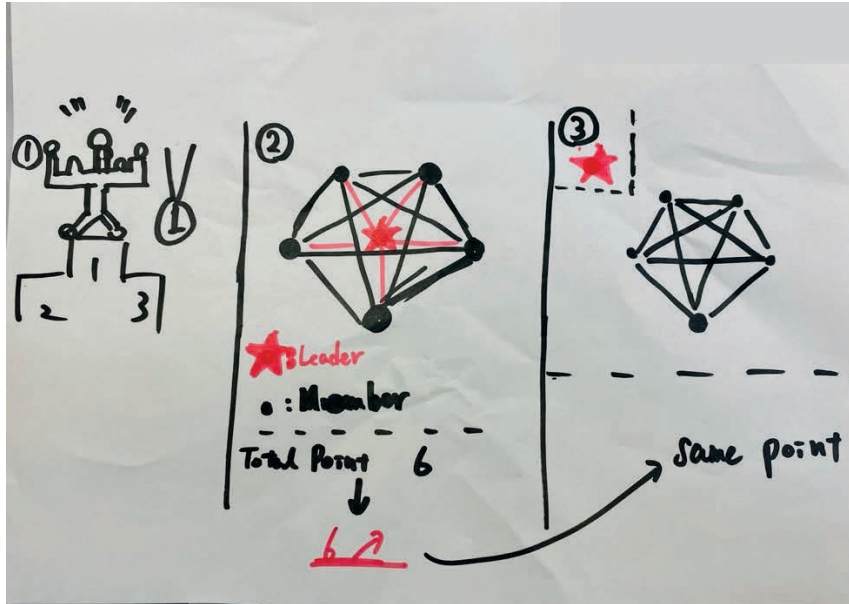 ①
1
2 3
①
②
★: Leader
• : Member
Total Point 6
↓
6 ↗
③
same point